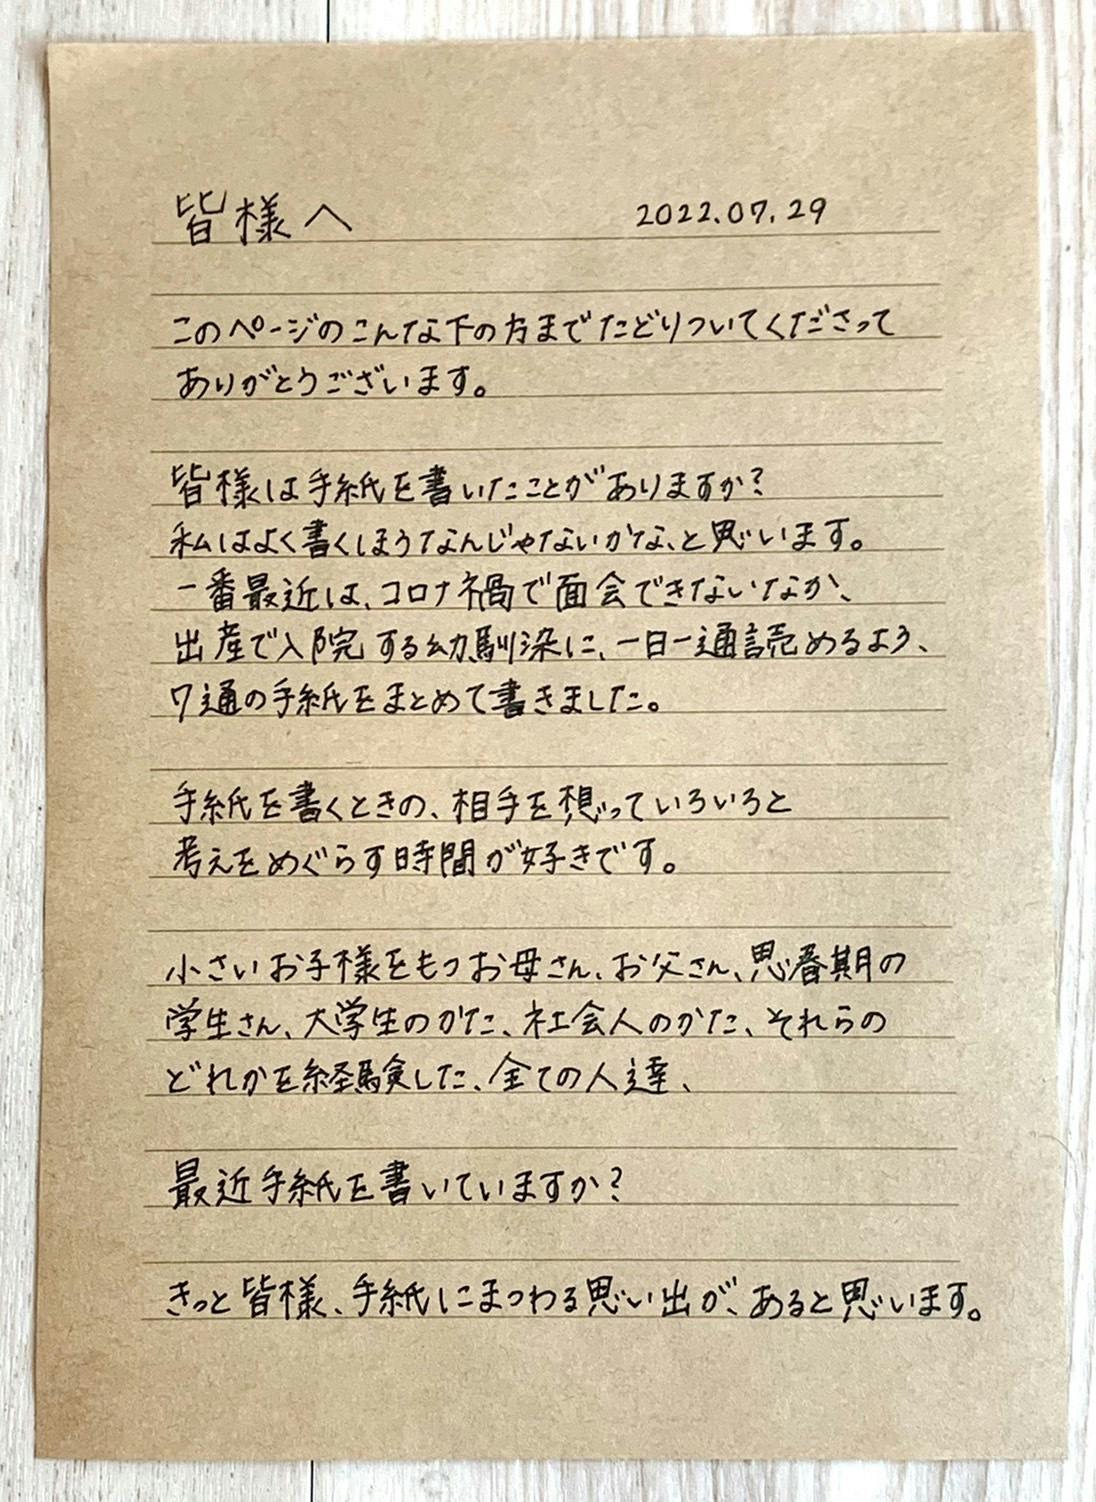 皆様へ 2022.07.29
このページのこんな下の方までたどりついてくださって
ありがとうございます。
皆様は手紙を書いたことがありますか?
私はよく書くほうなんじゃないかな、と思います。
一番最近は、コロナ禍で面会できないなか、
出産で入院する幼馴染に、一日一通読めるよう、
7通の手紙をまとめて書きました。
手紙を書くときの、相手を想っていろいろと
考えをめぐらす時間が好きです。
小さいお子様をもつお母さん、お父さん、思春期の
学生さん、大学生のかた、社会人のかた、それらの
どれかを経験した、全ての人達、
最近手紙を書いていますか?
きっと皆様、手紙にまつわる思い出が、あると思います。